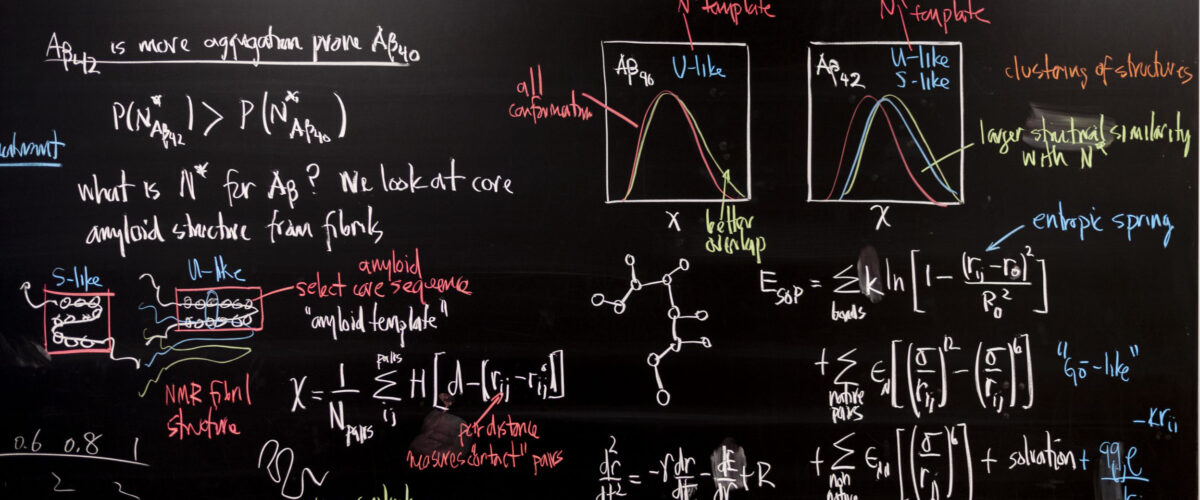 Aβ42 is more aggregation prone Aβ40
P(N*Aβ42) > P(N*Aβ40)
what is N* for Aβ? We look at core
amyloid structure from fibrils
S-like
U-like
amyloid
select core sequence
"amyloid template"
NMR fibril
structure
χ = 1/Npairs Σij pairs H[d-(rij-rij°)]
pair distance
measures "contact" pairs
0.6 0.8 1
2 2
N* template
Aβ40
U-like
all
conformation
χ
better
overlap
N* template
Aβ42
U-like
S-like
χ
clustering of structures
larger structural similarity
with N*
entropic spring
ESOP = Σbonds k ln[1 - (rij-r0)²/R0²]
+ Σnative pairs ϵN[(σ/rij)^12 - (σ/rij)^6]
"Gō-like"
-κrij
+ Σnon native ϵNN[(σ/rij)^6] + solvation +
d²r/dt² = -γ dr/dt - dE/dr + R